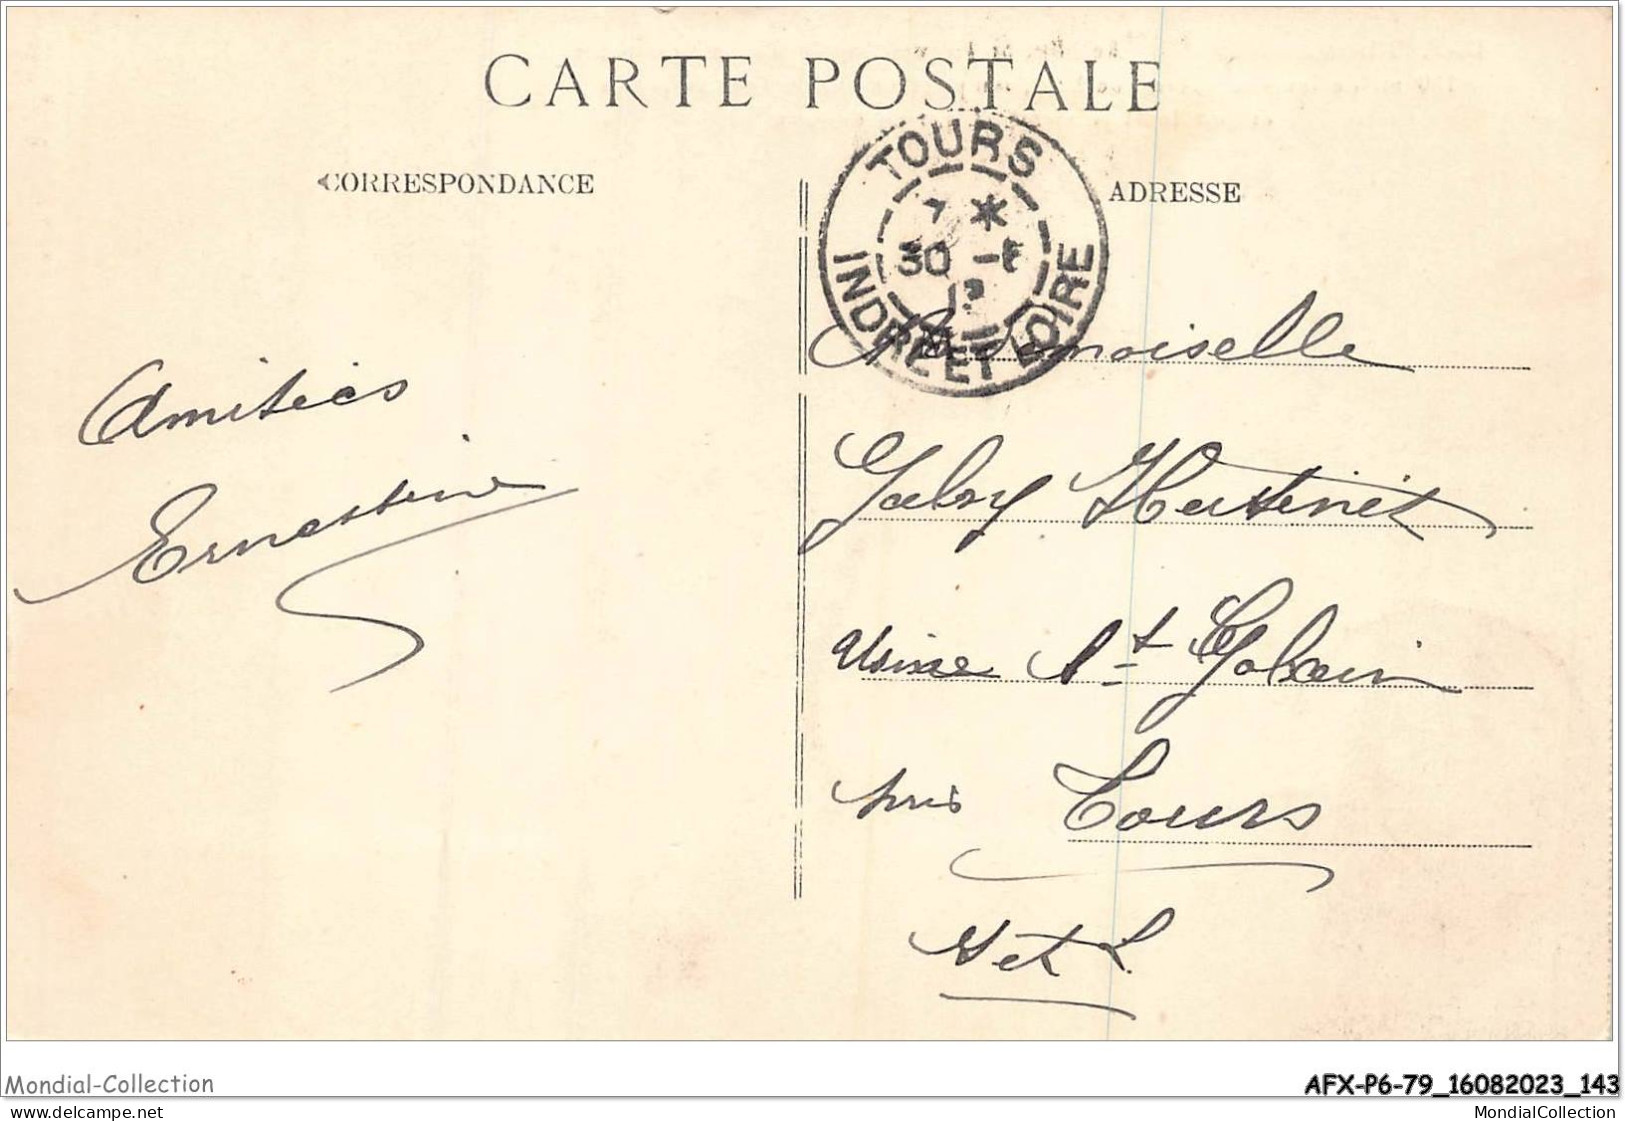 CARTE POSTALE
CORRESPONDANCE
ADRESSE
TOURS
7 *
30 -
INDRE ET LOIRE
Amitiés
Ernestine
Mademoiselle
Gaby
Usine St Gobain
près Tours
I et L.
Mondial-Collection
AFX-P6-79_16082023_143
delcampe.net
MondialCollection